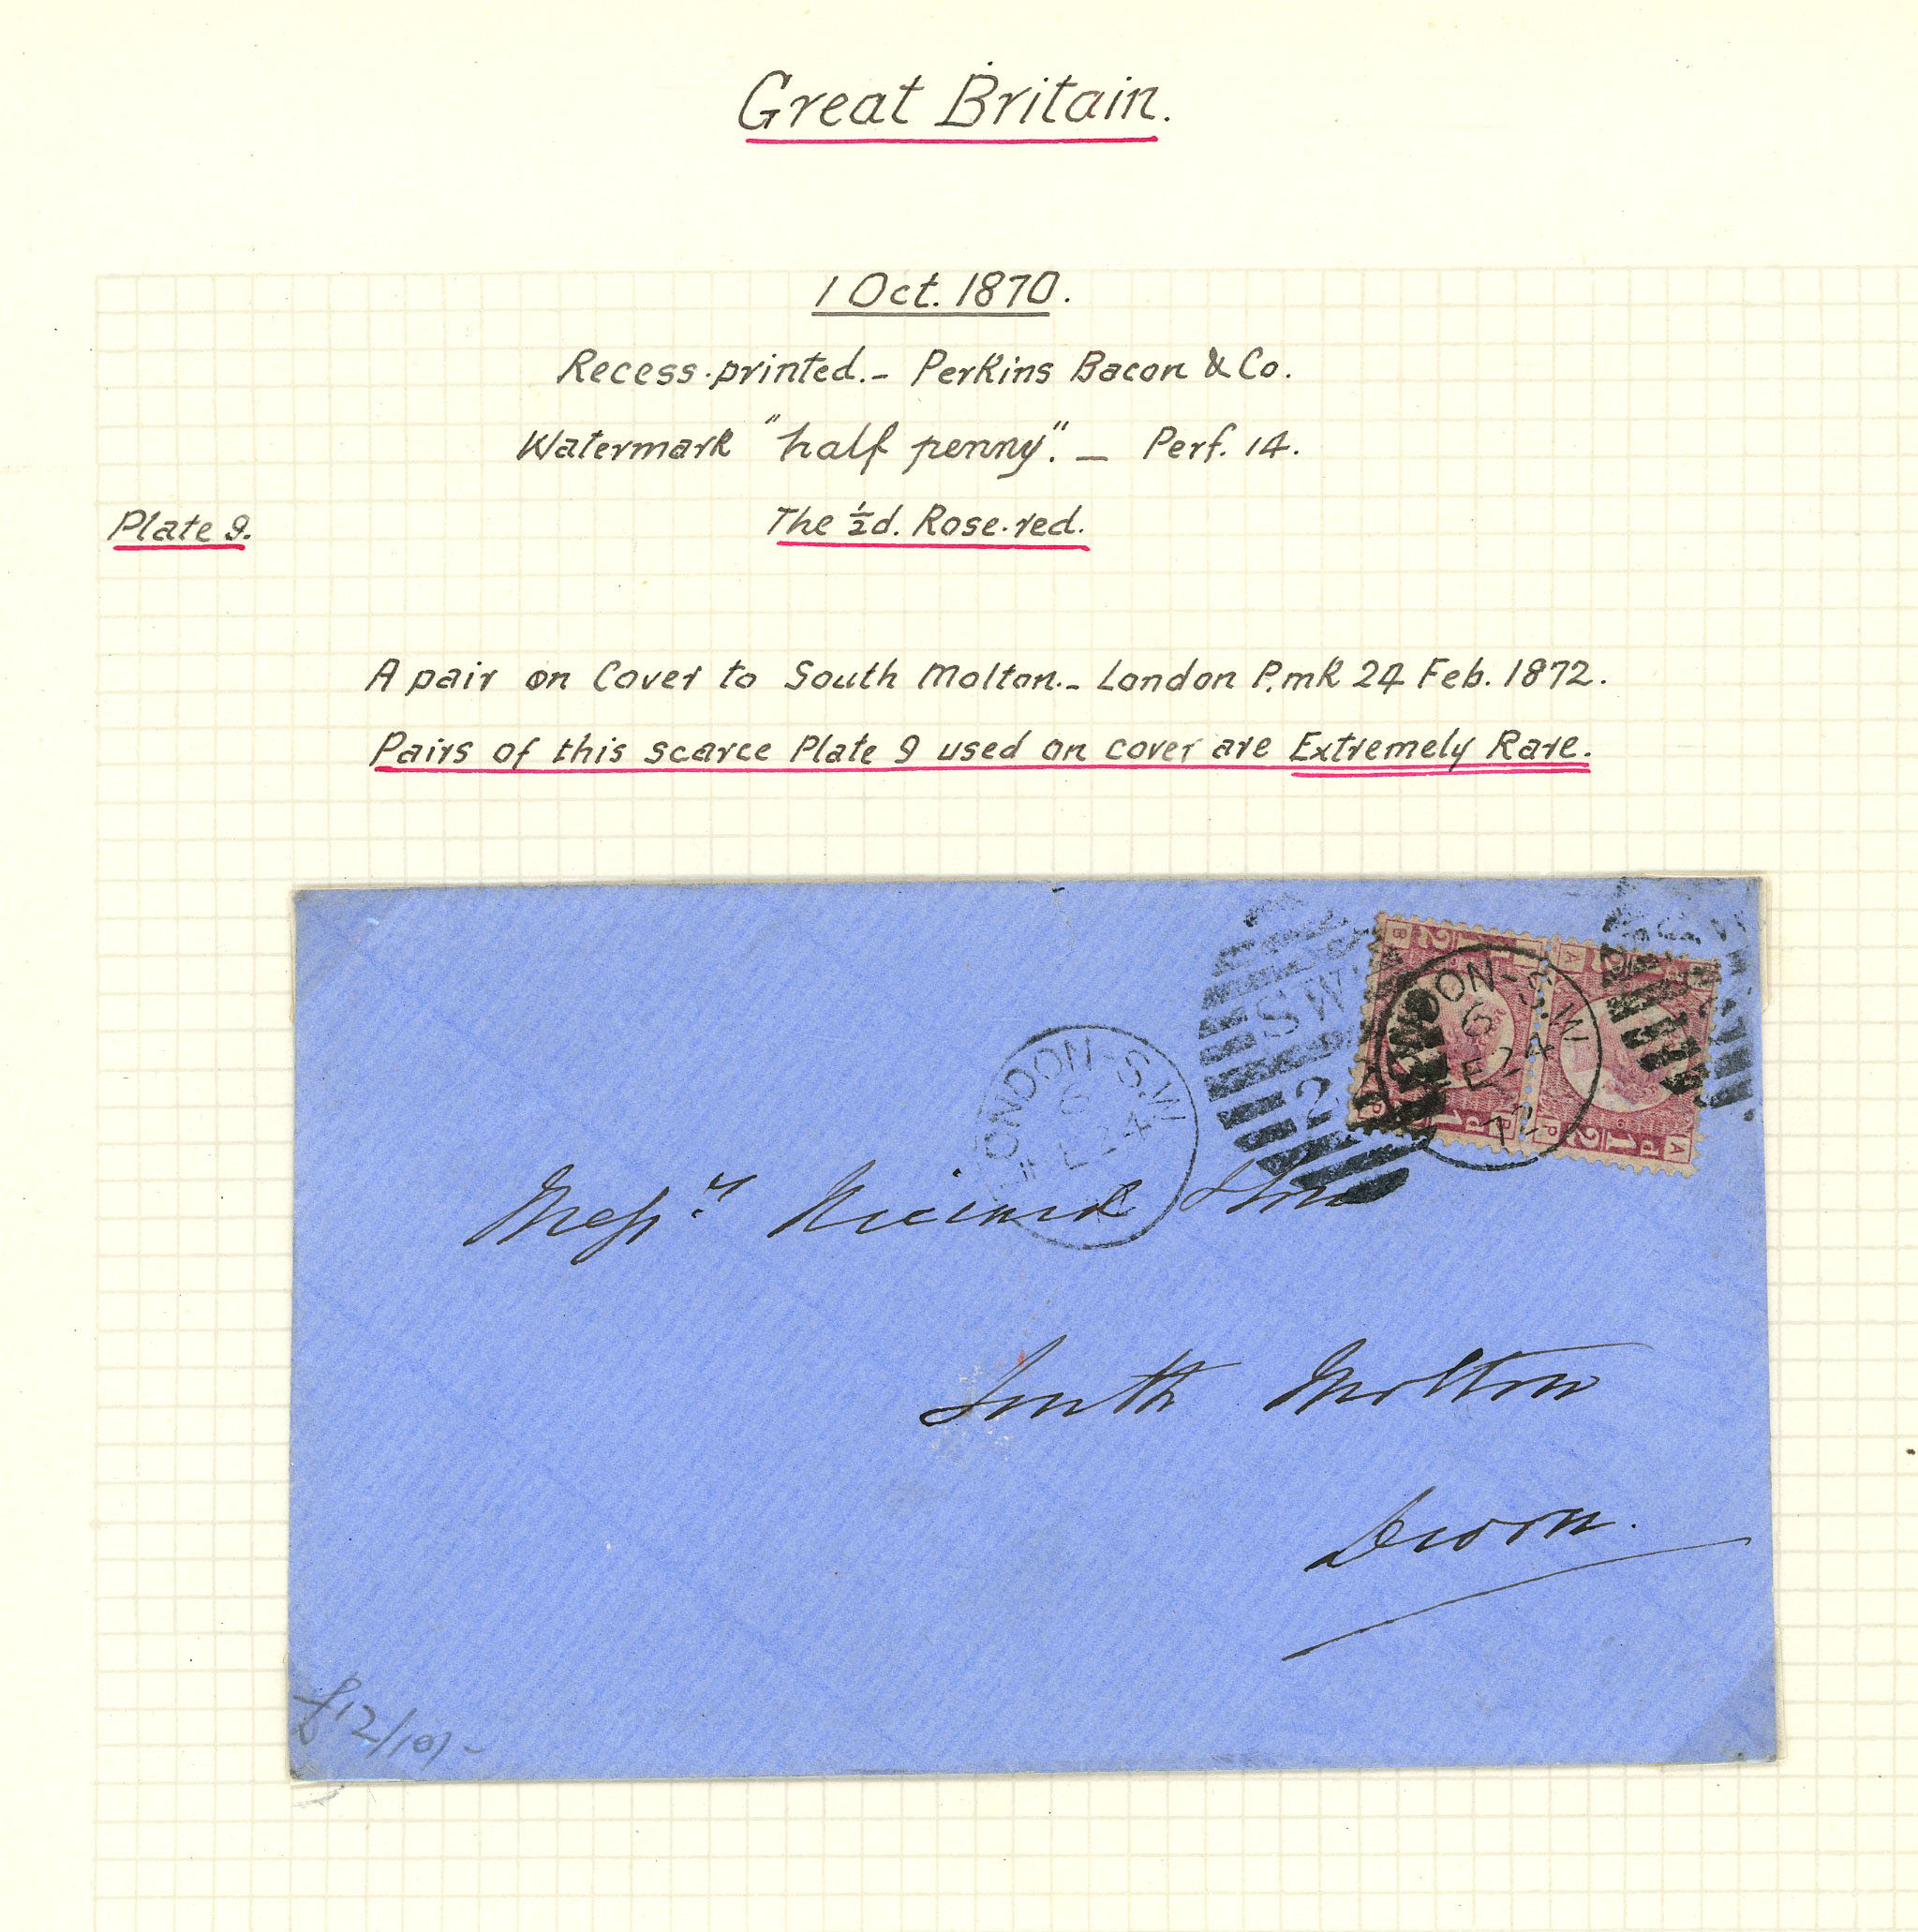 Great Britain.
1 Oct. 1870.
Recess-printed. - Perkins Bacon & Co.
Watermark "half penny". - Perf. 14.
Plate 9.
The ½d. Rose-red.
A pair on Cover to South Molton. - London P.mk 24 Feb. 1872.
Pairs of this scarce Plate 9 used on cover are Extremely Rare.
SW
2
LONDON-S.W
6
FE24
72
LONDON-S.W
6
FE24
Messrs
South Molton
Devon.
£12/10/-